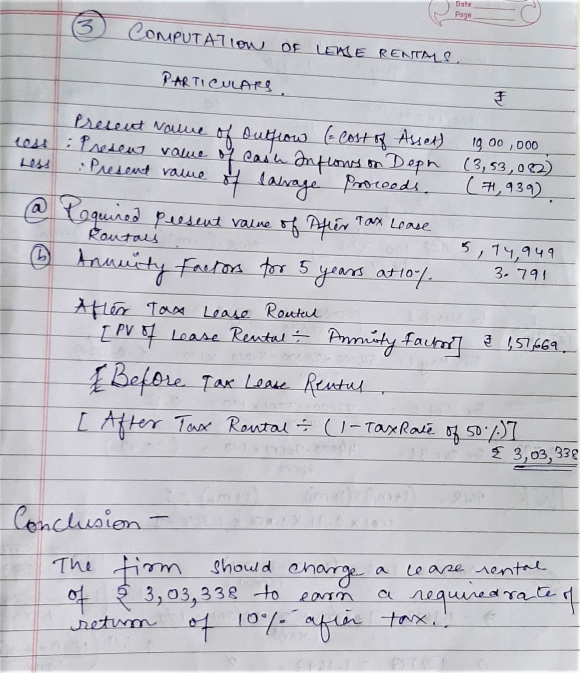 Date
Page
③ COMPUTATION OF LEASE RENTALS.
PARTICULARS. ₹
Present value of Outflow (=cost of Asset) 10,00,000
Less : Present value of Cash Inflows on Depn (3,53,082)
Less : Present value of Salvage Proceeds. (71,939)
ⓐ Required present value of After Tax Lease
Rentals 5,74,949
ⓑ Annuity Factors for 5 years at 10%. 3.791
After Tax Lease Rental
[PV of Lease Rental ÷ Annuity factor] ₹ 1,51,669.
[Before Tax Lease Rental.
[After Tax Rental ÷ (1-Tax Rate of 50%)]
₹ 3,03,338
Conclusion –
The firm should charge a lease rental
of ₹ 3,03,338 to earn a required rate of
return of 10% after tax..